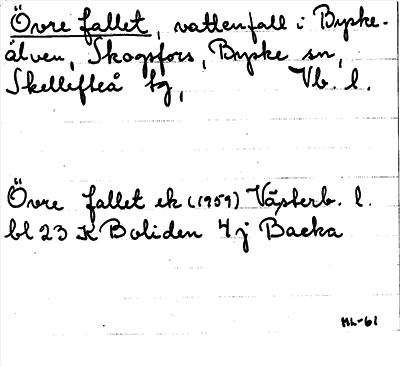 Övre fallet, vattenfall i Byske-
älven, Skogsfors, Byske sn,
Skellefteå tg, Vb. l.
Övre fallet ek (1959) Västerb. l.
bl 23 K Boliden 4 j Backa
ML-61